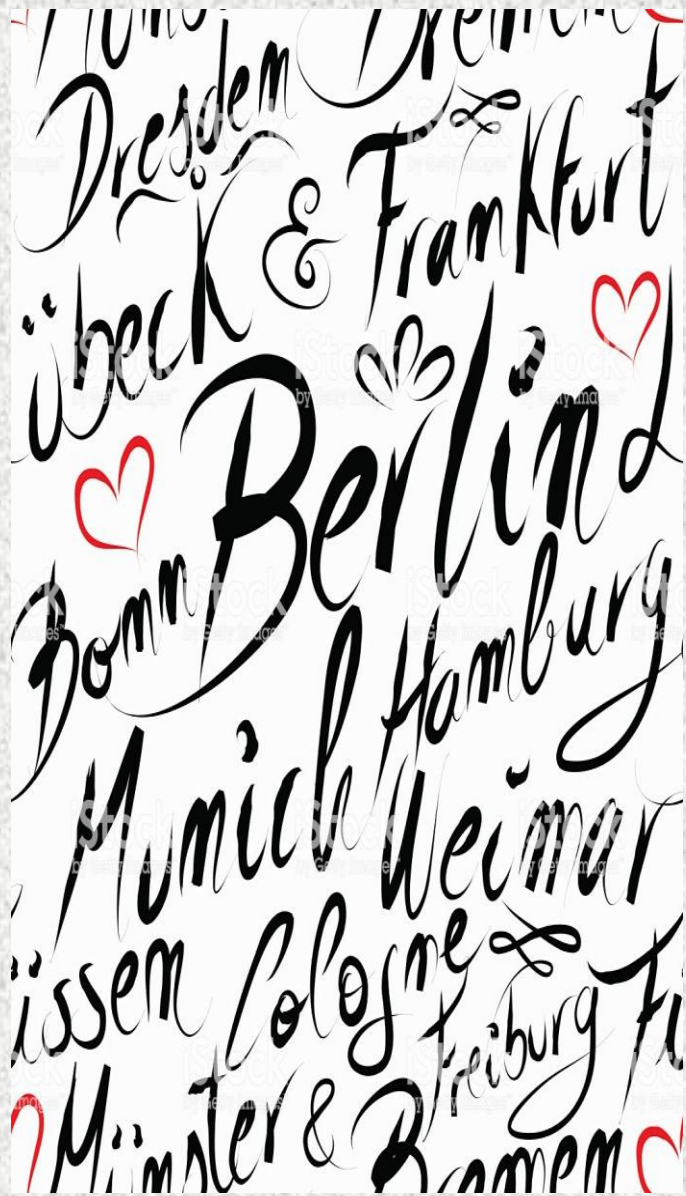 Dresden
& Frankfurt
übeck
Berlin L
Bonn
Hamburg
Munich
Weimar
üssen Cologne
Freiburg Fü
Münster & Bremen
iStock
by Getty Images™